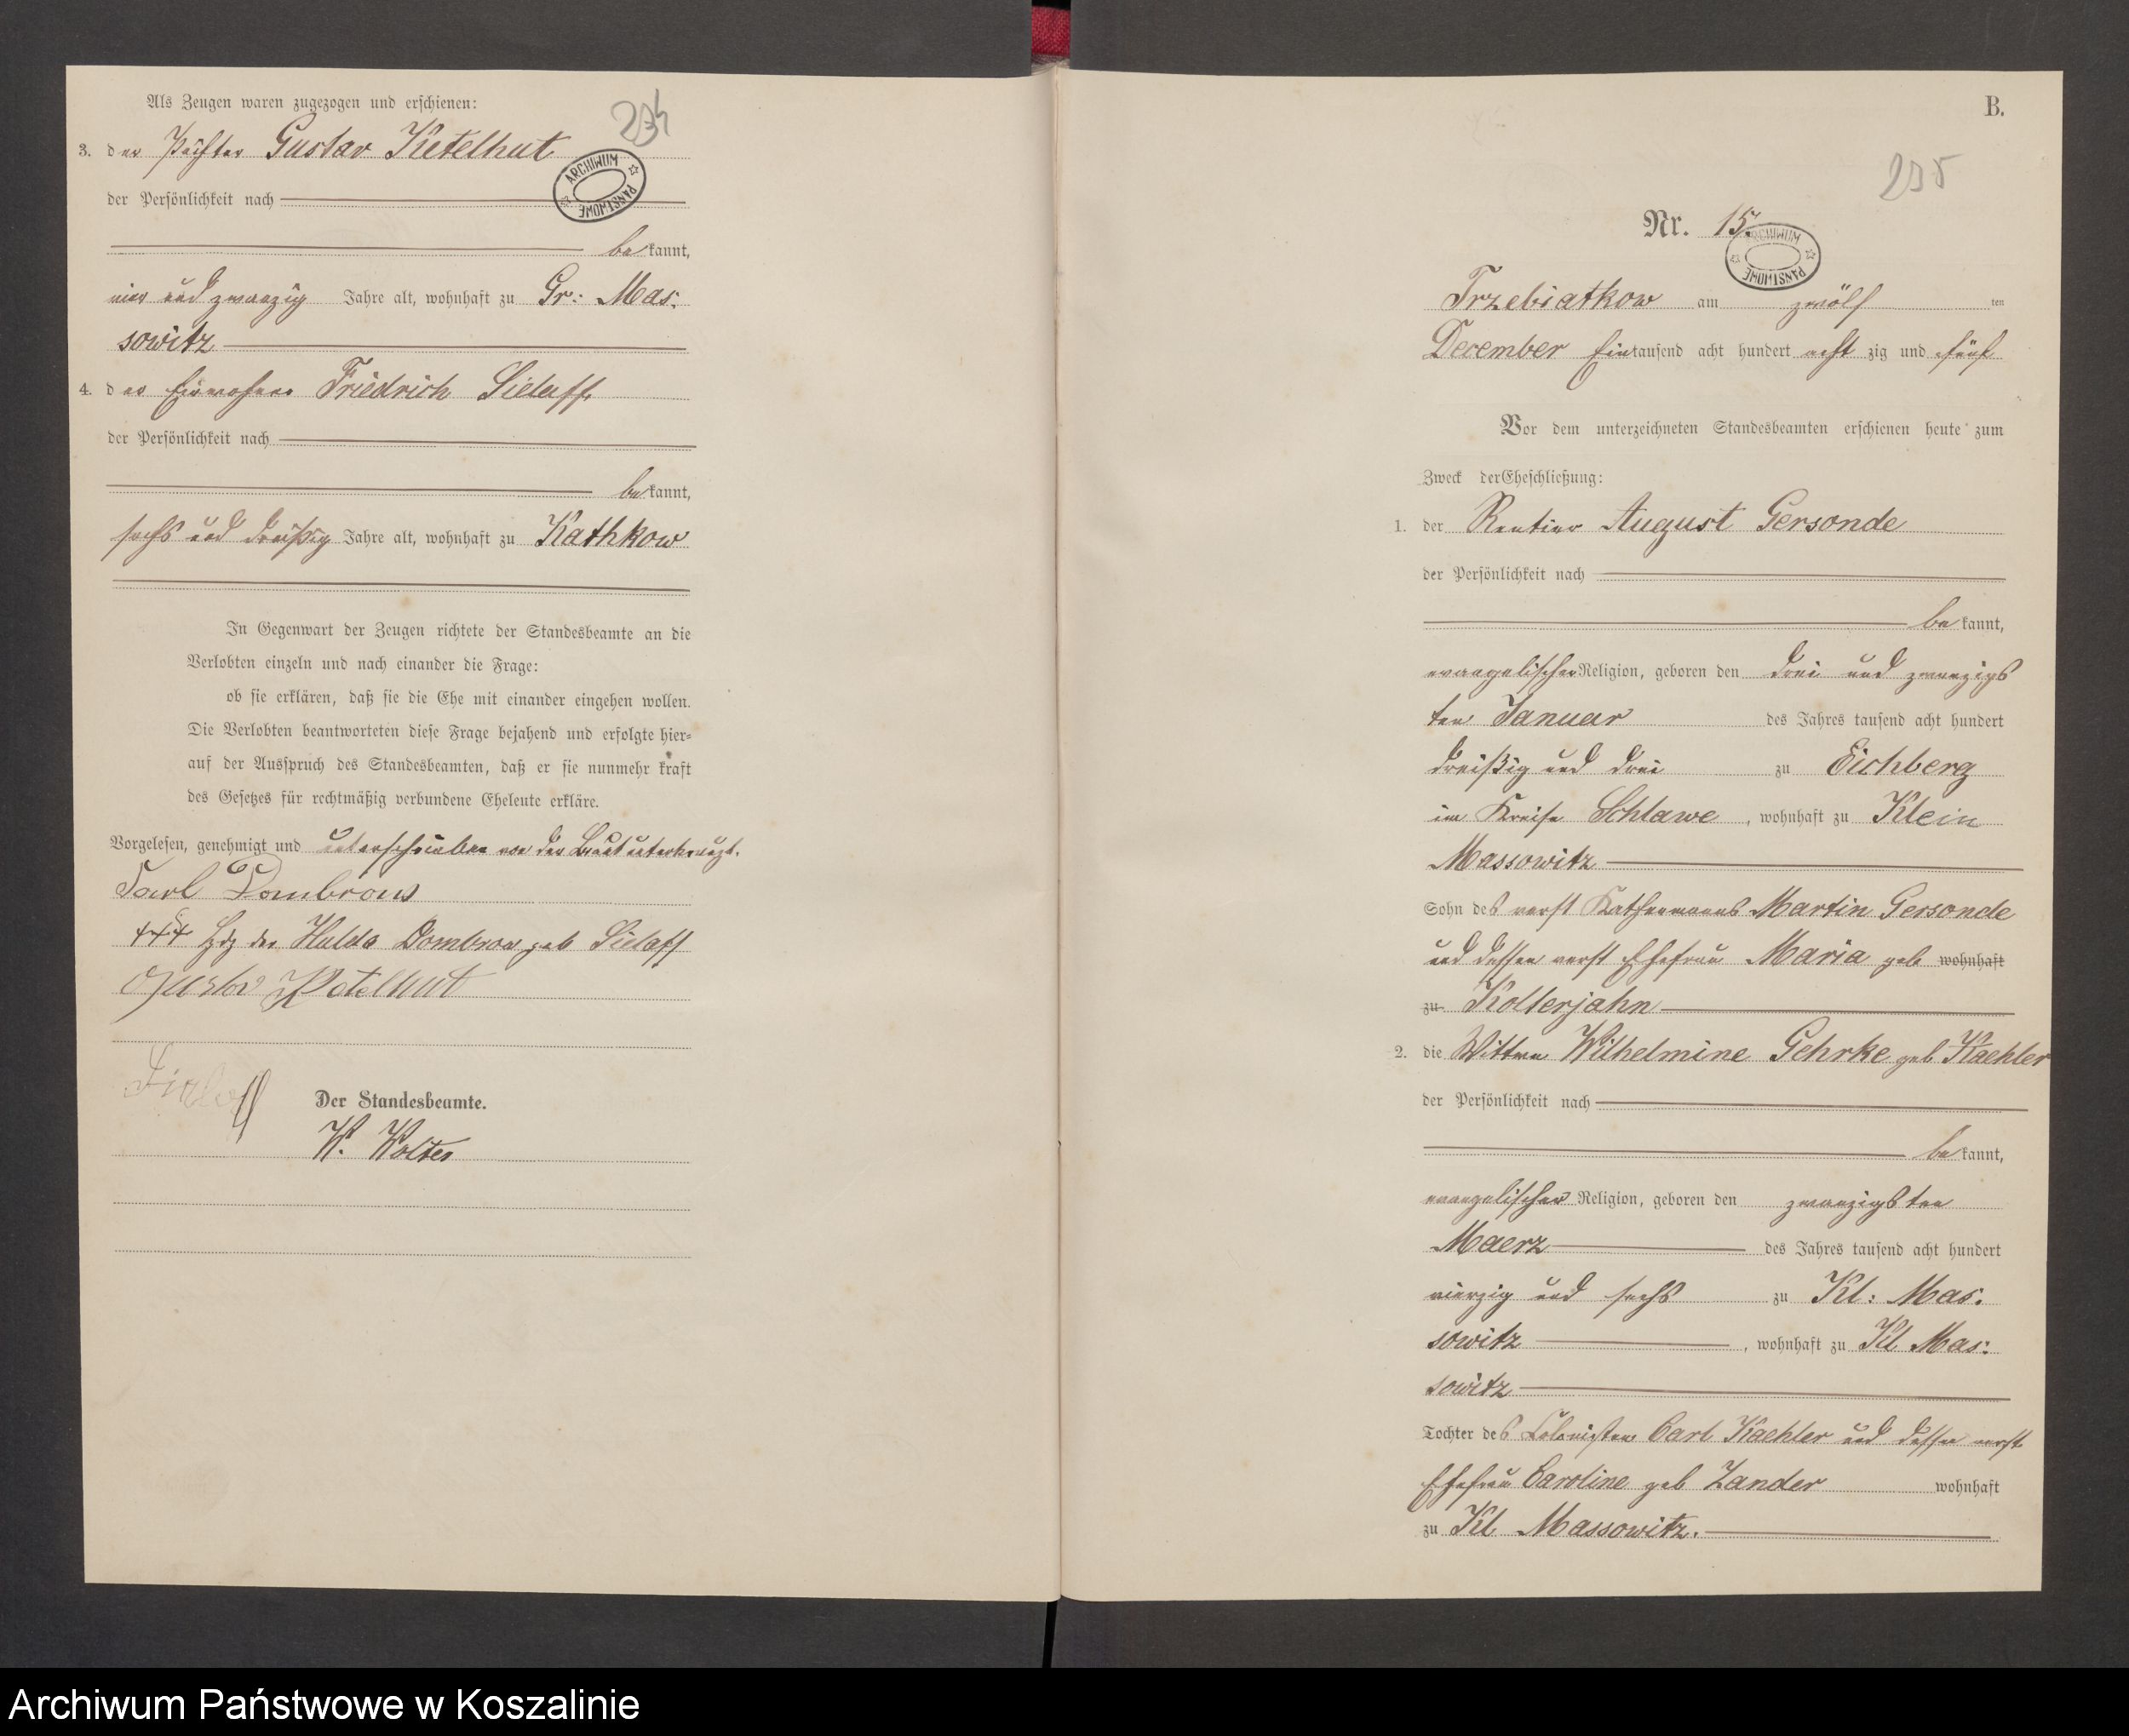 Als Zeugen waren zugezogen und erschienen:
234
3. der Pächter Gustav Ketelhut
ARCHIWUM PAŃSTWOWE
der Persönlichkeit nach
be kannt,
vier und zwanzig Jahre alt, wohnhaft zu Gr: Mas:
sowitz
4. der Einwohner Friedrich Sielaff
der Persönlichkeit nach
be kannt,
sechs und dreißig Jahre alt, wohnhaft zu Kathkow
In Gegenwart der Zeugen richtete der Standesbeamte an die
Verlobten einzeln und nach einander die Frage:
ob sie erklären, daß sie die Ehe mit einander eingehen wollen.
Die Verlobten beantworteten diese Frage bejahend und erfolgte hier=
auf der Ausspruch des Standesbeamten, daß er sie nunmehr kraft
des Gesetzes für rechtmäßig verbundene Eheleute erkläre.
Vorgelesen, genehmigt und unterschrieben von der Braut unterkreuzt.
Carl Dombrow
+++ Hdz der Hulda Dombrow geb Sielaff
Gustav Ketelhut
Sielaff
Der Standesbeamte.
W. Wolter
B.
235
Nr. 15.
ARCHIWUM PAŃSTWOWE
Trzebiatkow am zwölf ten
December Ein tausend acht hundert acht zig und fünf
Vor dem unterzeichneten Standesbeamten erschienen heute zum
Zweck der Eheschließung:
1. der Rentier August Gersonde
der Persönlichkeit nach
be kannt,
evangelischer Religion, geboren den drei und zwanzigs
ten Januar des Jahres tausend acht hundert
dreißig und drei zu Eichberg
im Kreise Schlawe, wohnhaft zu Klein
Massowitz
Sohn des verst Kathenmanns Martin Gersonde
und dessen verst Ehefrau Maria geb wohnhaft
zu Kollerjahn
2. die Wittwe Wilhelmine Gehrke geb Kaehler
der Persönlichkeit nach
be kannt,
evangelischer Religion, geboren den zwanzigsten
Maerz des Jahres tausend acht hundert
vierzig und sechs zu Kl: Mas.
sowitz, wohnhaft zu Kl Mas:
sowitz
Tochter des Colonisten Carl Kaehler und dessen verst
Ehefrau Caroline geb Zander wohnhaft
zu Kl Massowitz.
Archiwum Państwowe w Koszalinie